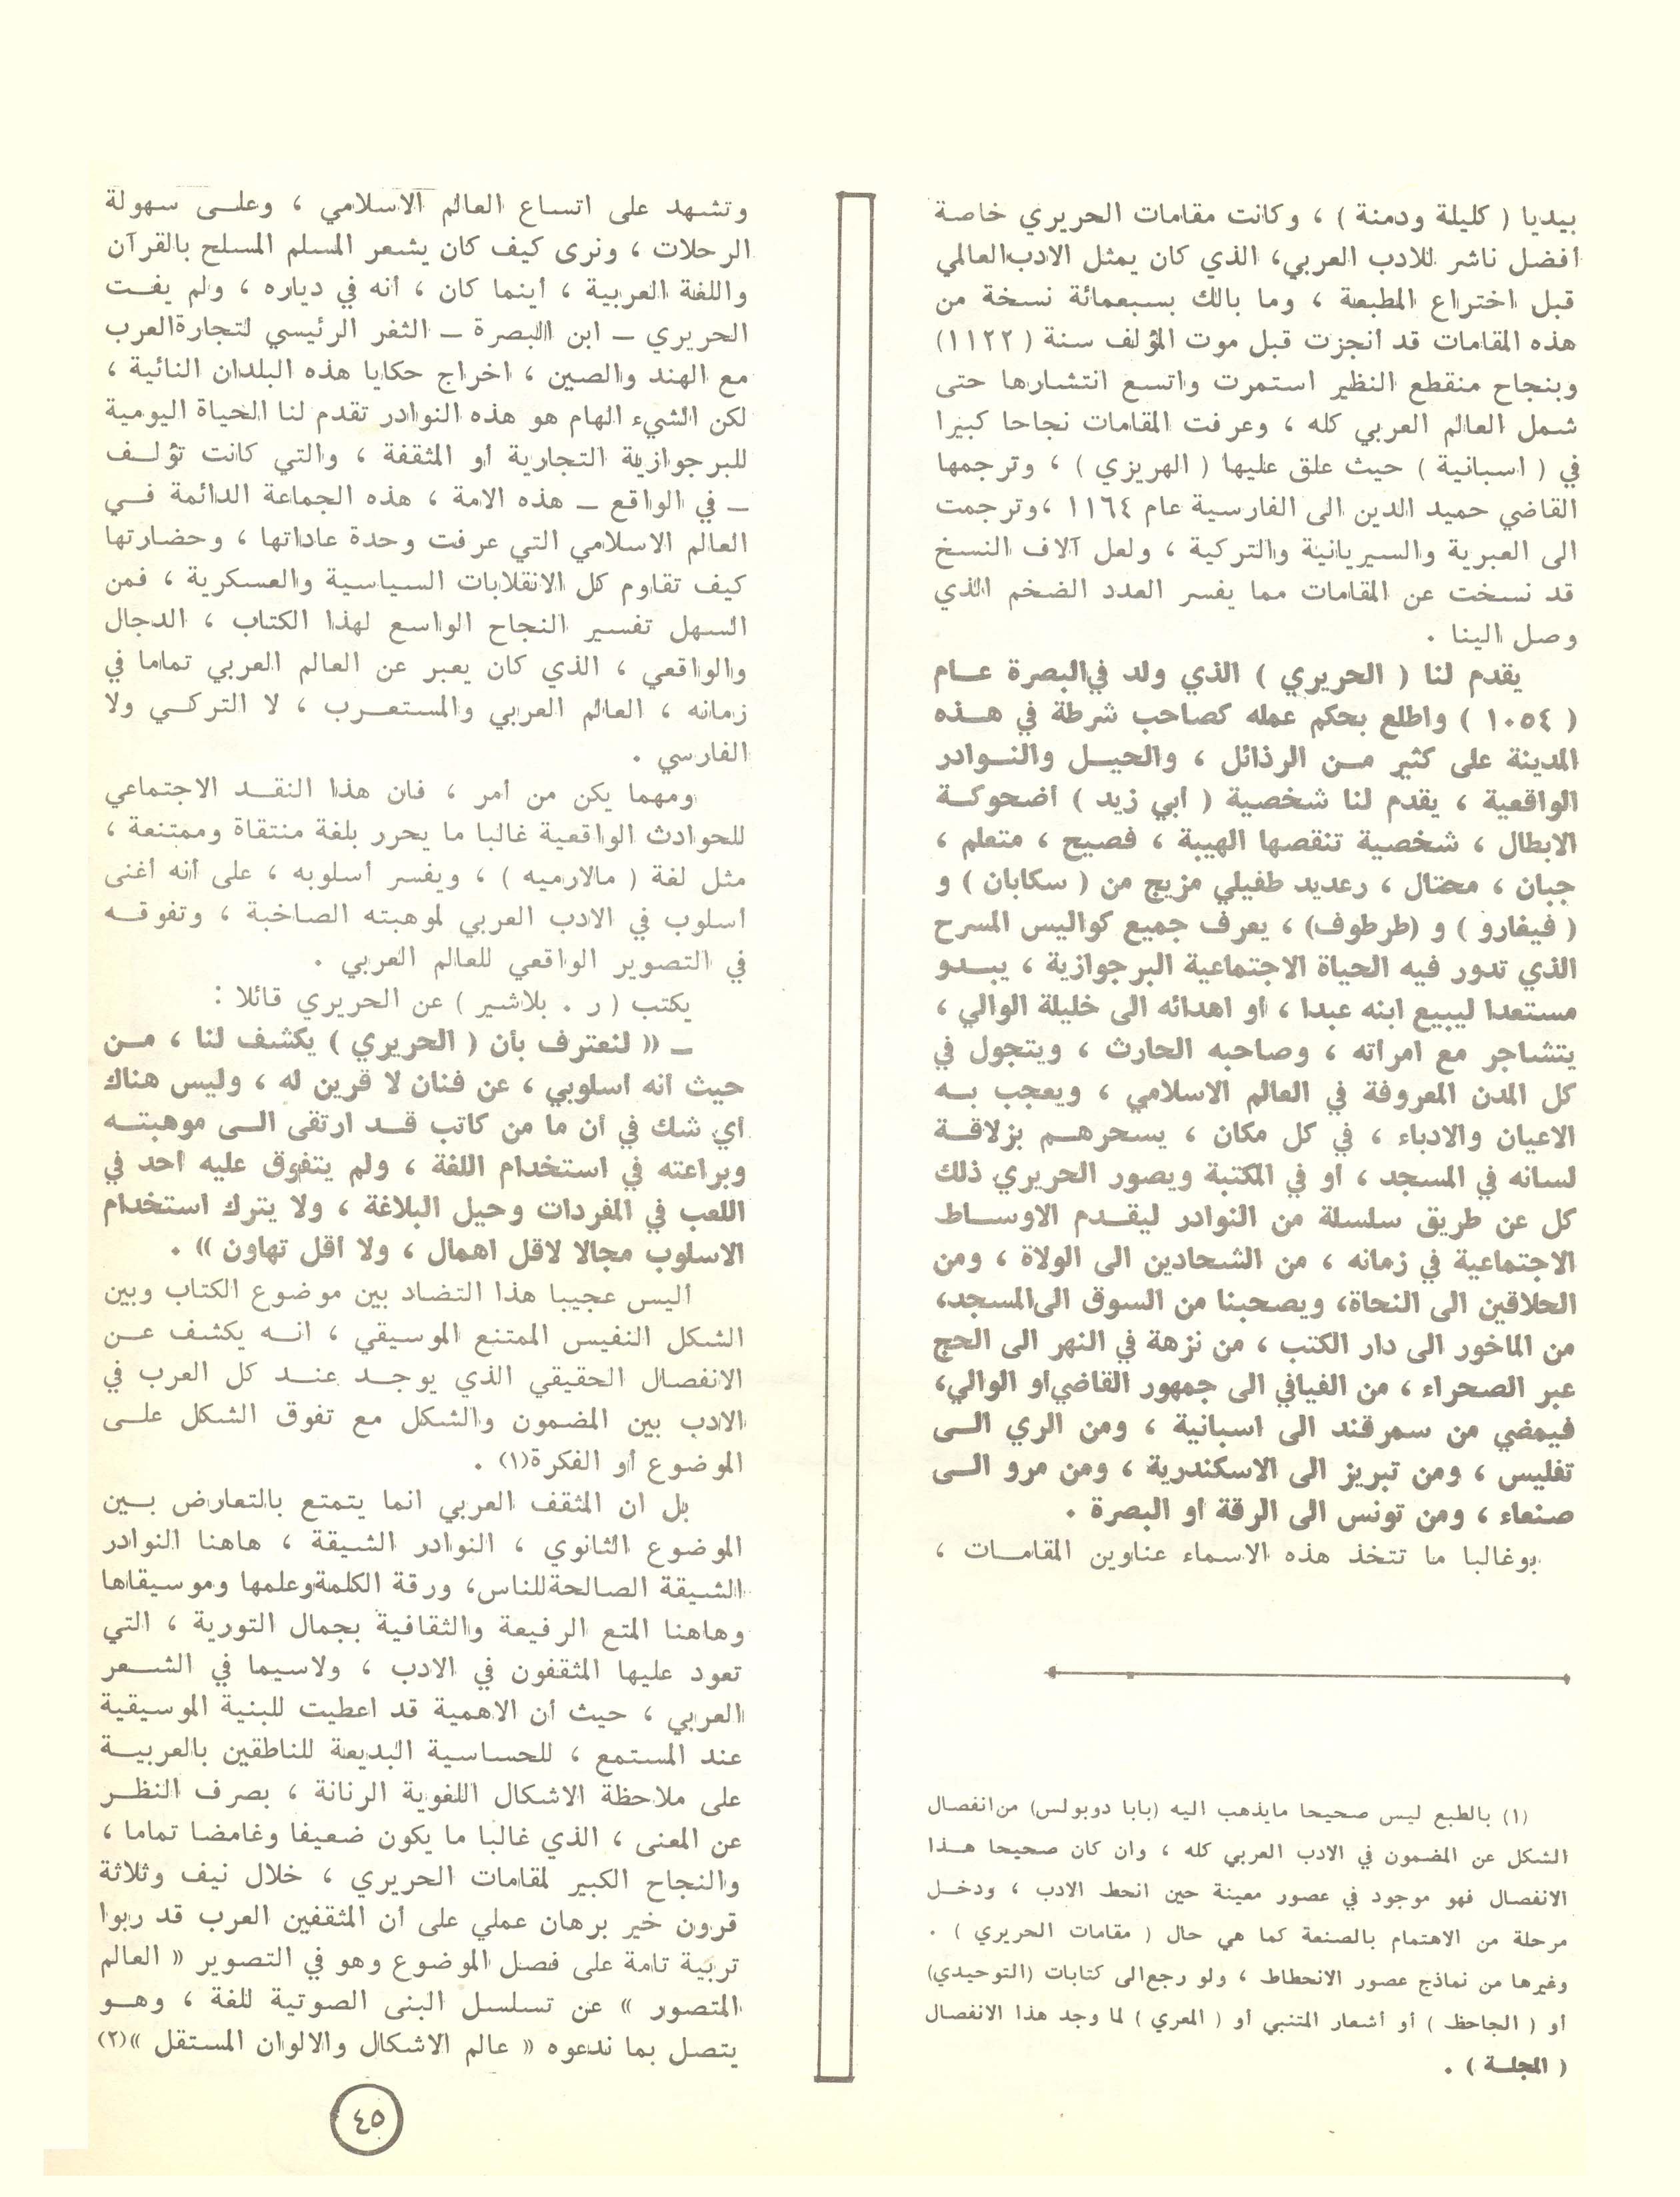 بيديا ( كليلة ودمنة ) ، وكانت مقامات الحريري خاصة
أفضل ناشر للادب العربي، الذي كان يمثل الادب العالمي
قبل اختراع المطبعة ، وما بالك بسبعمائة نسخة من
هذه المقامات قد أنجزت قبل موت المؤلف سنة ( ١١٢٢)
وبنجاح منقطع النظير استمرت واتسع انتشارها حتى
شمل العالم العربي كله ، وعرفت المقامات نجاحا كبيرا
في ( اسبانية ) حيث علق عليها ( الهريزي ) ، وترجمها
القاضي حميد الدين الى الفارسية عام ١١٦٤ ،وترجمت
الى العبرية والسيريانية والتركية ، ولعل آلاف النسخ
قد نسخت عن المقامات مما يفسر العدد الضخم الذي
وصل الينا .
يقدم لنا ( الحريري ) الذي ولد في البصرة عام
( ١٠٥٤ ) واطلع بحكم عمله كصاحب شرطة في هذه
المدينة على كثير من الرذائل ، والحيل والنوادر
الواقعية ، يقدم لنا شخصية ( أبي زيد ) أضحوكة
الابطال ، شخصية تنقصها الهيبة ، فصيح ، متعلم ،
جبان ، محتال ، رعديد طفيلي مزيج من ( سكابان ) و
( فيغارو ) و (طرطوف) ، يعرف جميع كواليس المسرح
الذي تدور فيه الحياة الاجتماعية البرجوازية ، يبدو
مستعدا ليبيع ابنه عبدا ، او اهدائه الى خليلة الوالي ،
يتشاجر مع امراته ، وصاحبه الحارث ، ويتجول في
كل المدن المعروفة في العالم الاسلامي ، ويعجب به
الاعيان والادباء ، في كل مكان ، يسحرهم بزلاقة
لسانه في المسجد ، او في المكتبة ويصور الحريري ذلك
كل عن طريق سلسلة من النوادر ليقدم الاوساط
الاجتماعية في زمانه ، من الشحادين الى الولاة ، ومن
الحلاقين الى النحاة، ويصحبنا من السوق الى المسجد،
من الماخور الى دار الكتب ، من نزهة في النهر الى الحج
عبر الصحراء ، من الفيافي الى جمهور القاضي او الوالي،
فيمضي من سمرقند الى اسبانية ، ومن الري الى
تفليس ، ومن تبريز الى الاسكندرية ، ومن مرو الى
صنعاء ، ومن تونس الى الرقة او البصرة .
وغالبا ما تتخذ هذه الاسماء عناوين المقامات ،
(١) بالطبع ليس صحيحا مايذهب اليه (بابا دوبولس) من انفصال
الشكل عن المضمون في الادب العربي كله ، وان كان صحيحا هذا
الانفصال فهو موجود في عصور معينة حين انحط الادب ، ودخل
مرحلة من الاهتمام بالصنعة كما هي حال ( مقامات الحريري ) .
وغيرها من نماذج عصور الانحطاط ، ولو رجع الى كتابات (التوحيدي)
أو ( الجاحظ ) أو أشعار المتنبي أو ( المعري ) لما وجد هذا الانفصال
( المجلة ) .
وتشهد على اتساع العالم الاسلامي ، وعلى سهولة
الرحلات ، ونرى كيف كان يشعر المسلم المسلح بالقرآن
واللغة العربية ، أينما كان ، أنه في دياره ، ولم يفت
الحريري – ابن البصرة – الثغر الرئيسي لتجارة العرب
مع الهند والصين ، اخراج حكايا هذه البلدان النائية ،
لكن الشيء الهام هو هذه النوادر تقدم لنا الحياة اليومية
للبرجوازية التجارية أو المثقفة ، والتي كانت تؤلف
– في الواقع – هذه الامة ، هذه الجماعة الدائمة في
العالم الاسلامي التي عرفت وحدة عاداتها ، وحضارتها
كيف تقاوم كل الانقلابات السياسية والعسكرية ، فمن
السهل تفسير النجاح الواسع لهذا الكتاب ، الدجال
والواقعي ، الذي كان يعبر عن العالم العربي تماما في
زمانه ، العالم العربي والمستعرب ، لا التركي ولا
الفارسي .
ومهما يكن من أمر ، فان هذا النقد الاجتماعي
للحوادث الواقعية غالبا ما يحرر بلغة منتقاة وممتنعة ،
مثل لغة ( مالارميه ) ، ويفسر أسلوبه ، على أنه أغنى
أسلوب في الادب العربي لموهبته الصاخبة ، وتفوقه
في التصوير الواقعي للعالم العربي .
يكتب ( ر . بلاشير ) عن الحريري قائلا :
– (( لنعترف بأن ( الحريري ) يكشف لنا ، من
حيث أنه أسلوبي ، عن فنان لا قرين له ، وليس هناك
أي شك في أن ما من كاتب قد ارتقى الى موهبته
وبراعته في استخدام اللغة ، ولم يتفوق عليه أحد في
اللعب في المفردات وحيل البلاغة ، ولا يترك استخدام
الاسلوب مجالا لاقل اهمال ، ولا أقل تهاون )) .
أليس عجيبا هذا التضاد بين موضوع الكتاب وبين
الشكل النفيس الممتنع الموسيقي ، انه يكشف عن
الانفصال الحقيقي الذي يوجد عند كل العرب في
الادب بين المضمون والشكل مع تفوق الشكل على
الموضوع أو الفكرة(١) .
بل ان المثقف العربي انما يتمتع بالتعارض بين
الموضوع الثانوي ، النوادر الشيقة ، هاهنا النوادر
الشيقة الصالحة للناس، ورقة الكلمة وعلمها وموسيقاها
وهاهنا المتع الرفيعة والثقافية بجمال التورية ، التي
تعود عليها المثقفون في الادب ، ولاسيما في الشعر
العربي ، حيث أن الاهمية قد اعطيت للبنية الموسيقية
عند المستمع ، للحساسية البديعة للناطقين بالعربية
على ملاحظة الاشكال اللغوية الرنانة ، بصرف النظر
عن المعنى ، الذي غالبا ما يكون ضعيفا وغامضا تماما ،
والنجاح الكبير لمقامات الحريري ، خلال نيف وثلاثة
قرون خير برهان عملي على أن المثقفين العرب قد ربوا
تربية تامة على فصل الموضوع وهو في التصوير (( العالم
المتصور )) عن تسلسل البنى الصوتية للغة ، وهو
يتصل بما ندعوه (( عالم الاشكال والالوان المستقل ))(٢)
٤٥